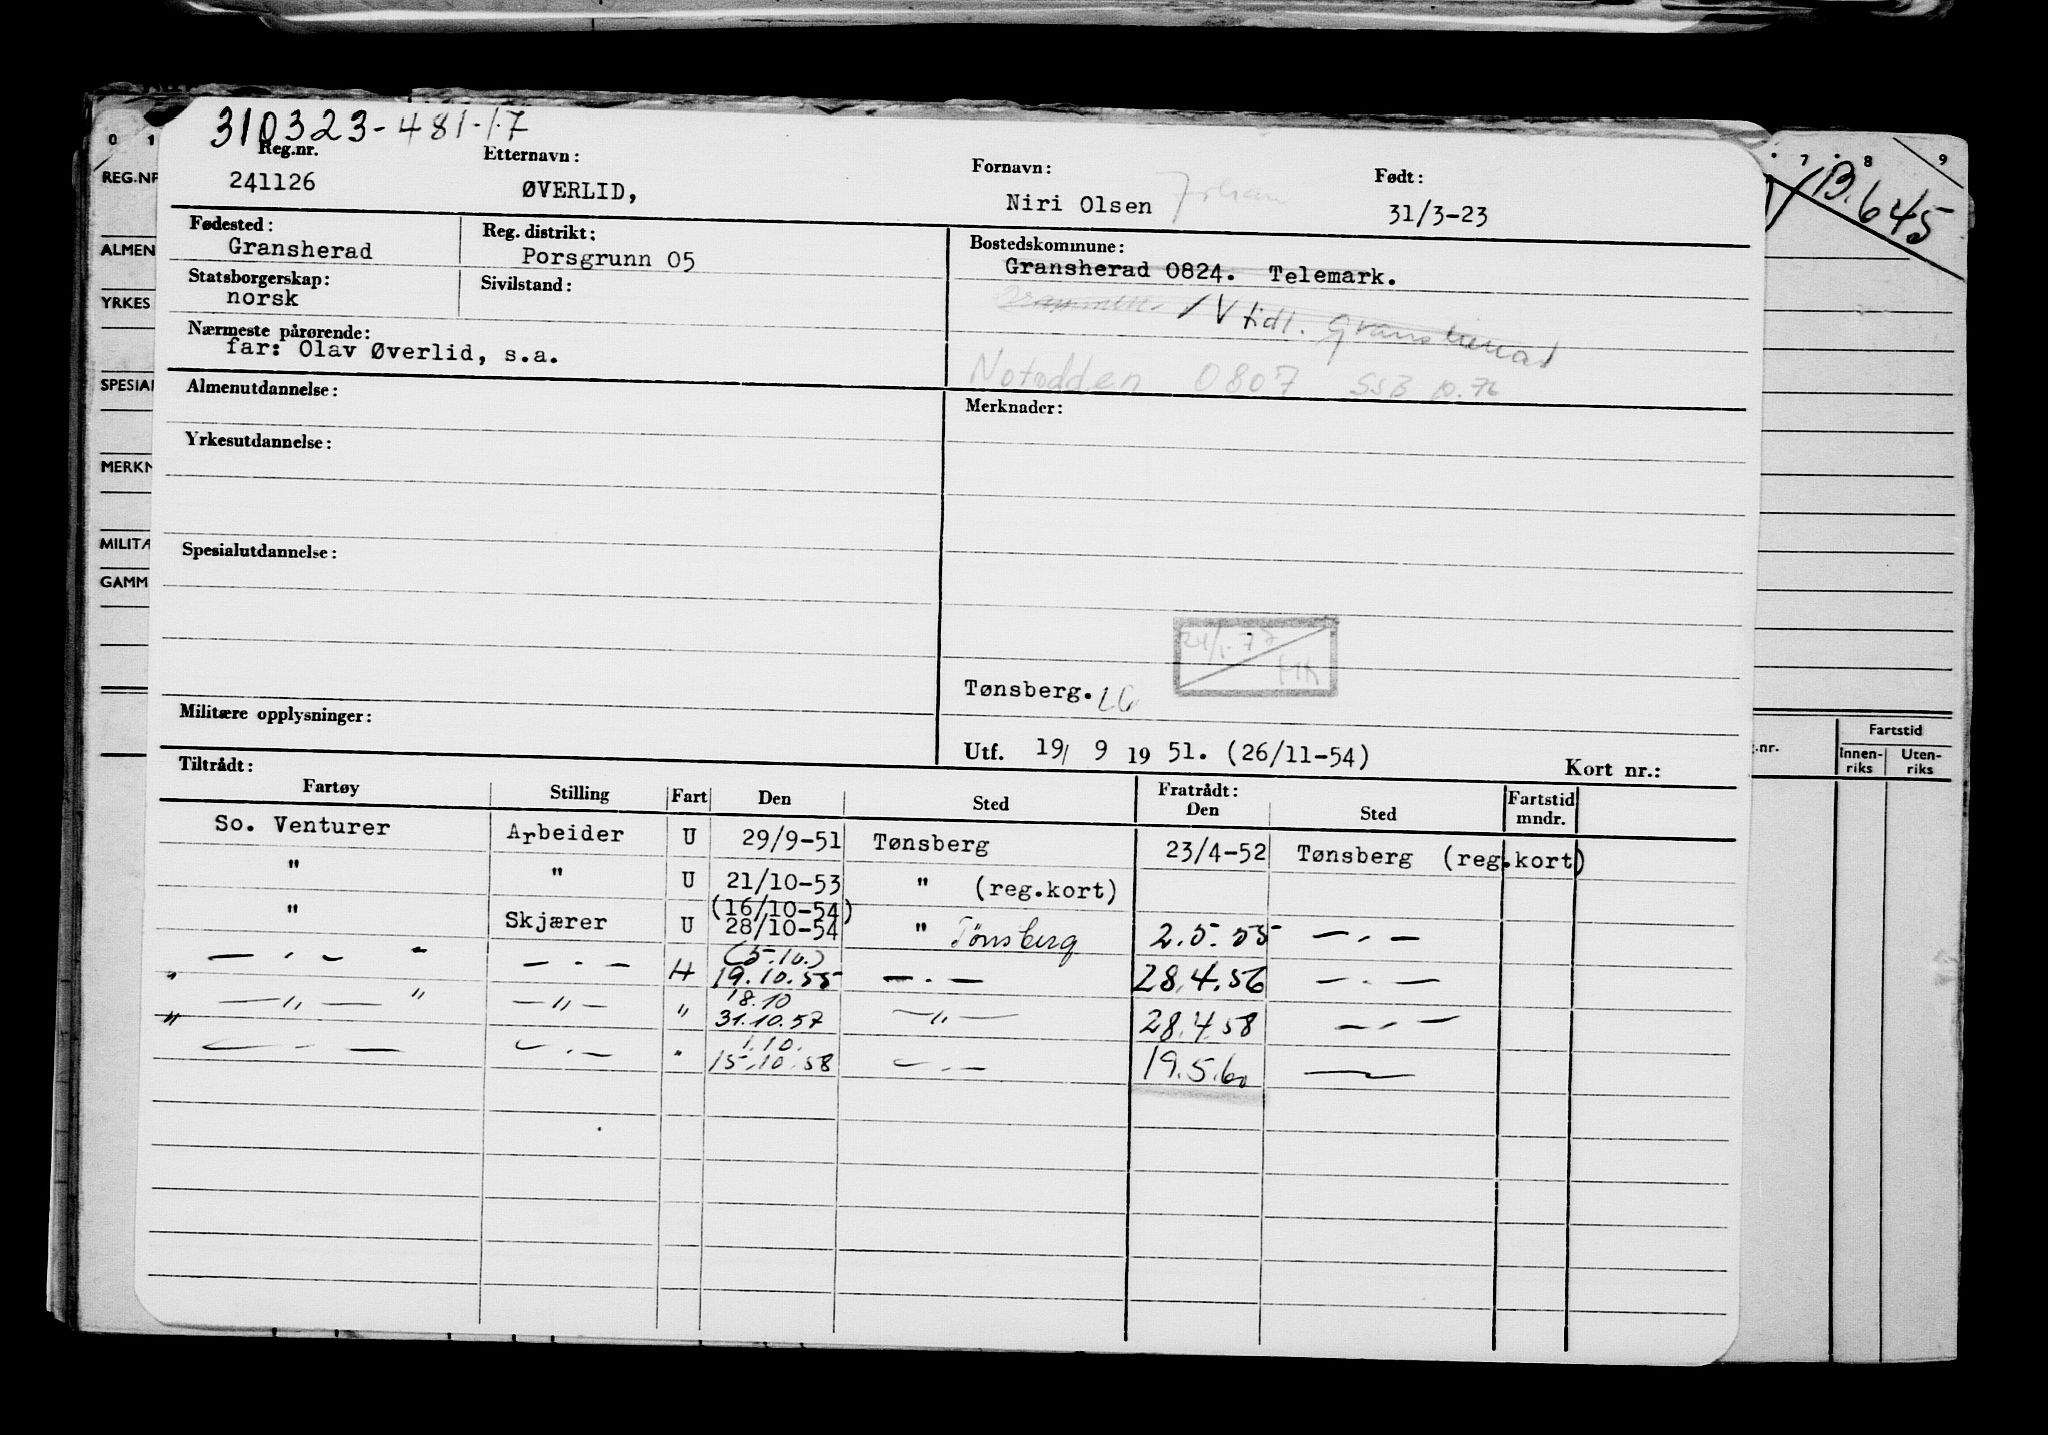 310323-481-17
Reg.nr. Etternavn: Fornavn: Født:
241126 ØVERLID, Niri Olsen Johan 31/3-23
Fødested: Reg. distrikt: Bostedskommune:
Gransherad Porsgrunn 05 Gransherad 0824. Telemark.
Statsborgerskap: Sivilstand:
norsk
tidl. Gransherad
Nærmeste pårørende:
far: Olav Øverlid, s.a.
Notodden 0807 SSB 10.76
Almenutdannelse: Merknader:
Yrkesutdannelse:
Spesialutdannelse:
24/1-77
HK
Tønsberg. LG
Militære opplysninger:
Utf. 19/ 9 19 51. (26/11-54) Kort nr.:
Tiltrådt: Fratrådt:
Fartøy Stilling Fart Den Sted Den Sted Fartstid mndr.
So. Venturer Arbeider U 29/9-51 Tønsberg 23/4-52 Tønsberg (reg.kort)
" " U 21/10-53 " (reg.kort)
(16/10-54)
" Skjærer U 28/10-54 " Tønsberg 2.5.55 — . —
(5.10.)
— . — " — . — H 19.10.55 — . — 28.4.56 — . —
18.10
" — " — " — " — " 31.10.57 — " — 28.4.58 — . —
1.10.
" — . — — . — " 15.10.58 — . — 19.5.60 —
0 1
REG.NR
ALMEN
YRKES
SPESIAL
MERKN
MILITÆ
GAMM
7 8 9
B.645
Fartstid
.nr. Innen-riks Uten-riks